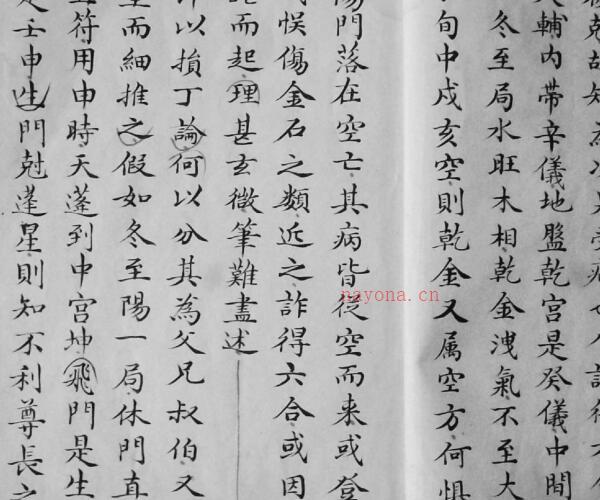 尅故知
辅內带辛儀地盤乾宫是癸儀中間
冬至局水旺木相乾金洩氣不至大
旬中戍亥空則乾金又属空方何惧
傷門落在空亡其病皆從空而来或登
悮傷金石之類近之詐得六合或因
而起理甚玄微筆難盡述
以損丁論何以分其為父兄叔伯又
而細推之假如冬至陽一局休門直
符用申時天蓬到中宫坤飛門是生
壬申生門尅蓬星則知不利尊長之
nayona.cn